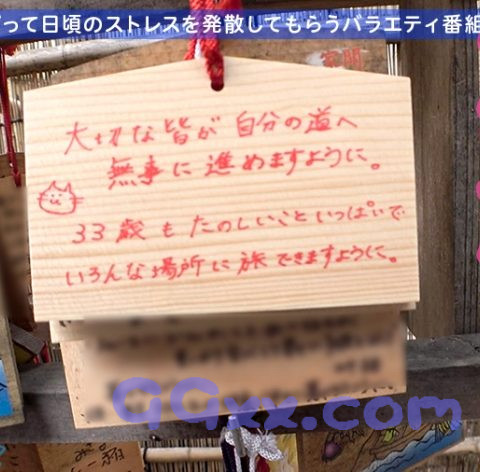 って日頃のストレスを発散してもらうバラエティ番組
大切な皆が自分の道へ
無事に進めますように。
33歳もたのしいこといっぱいで
いろんな場所に旅できますように。
GGxx.com